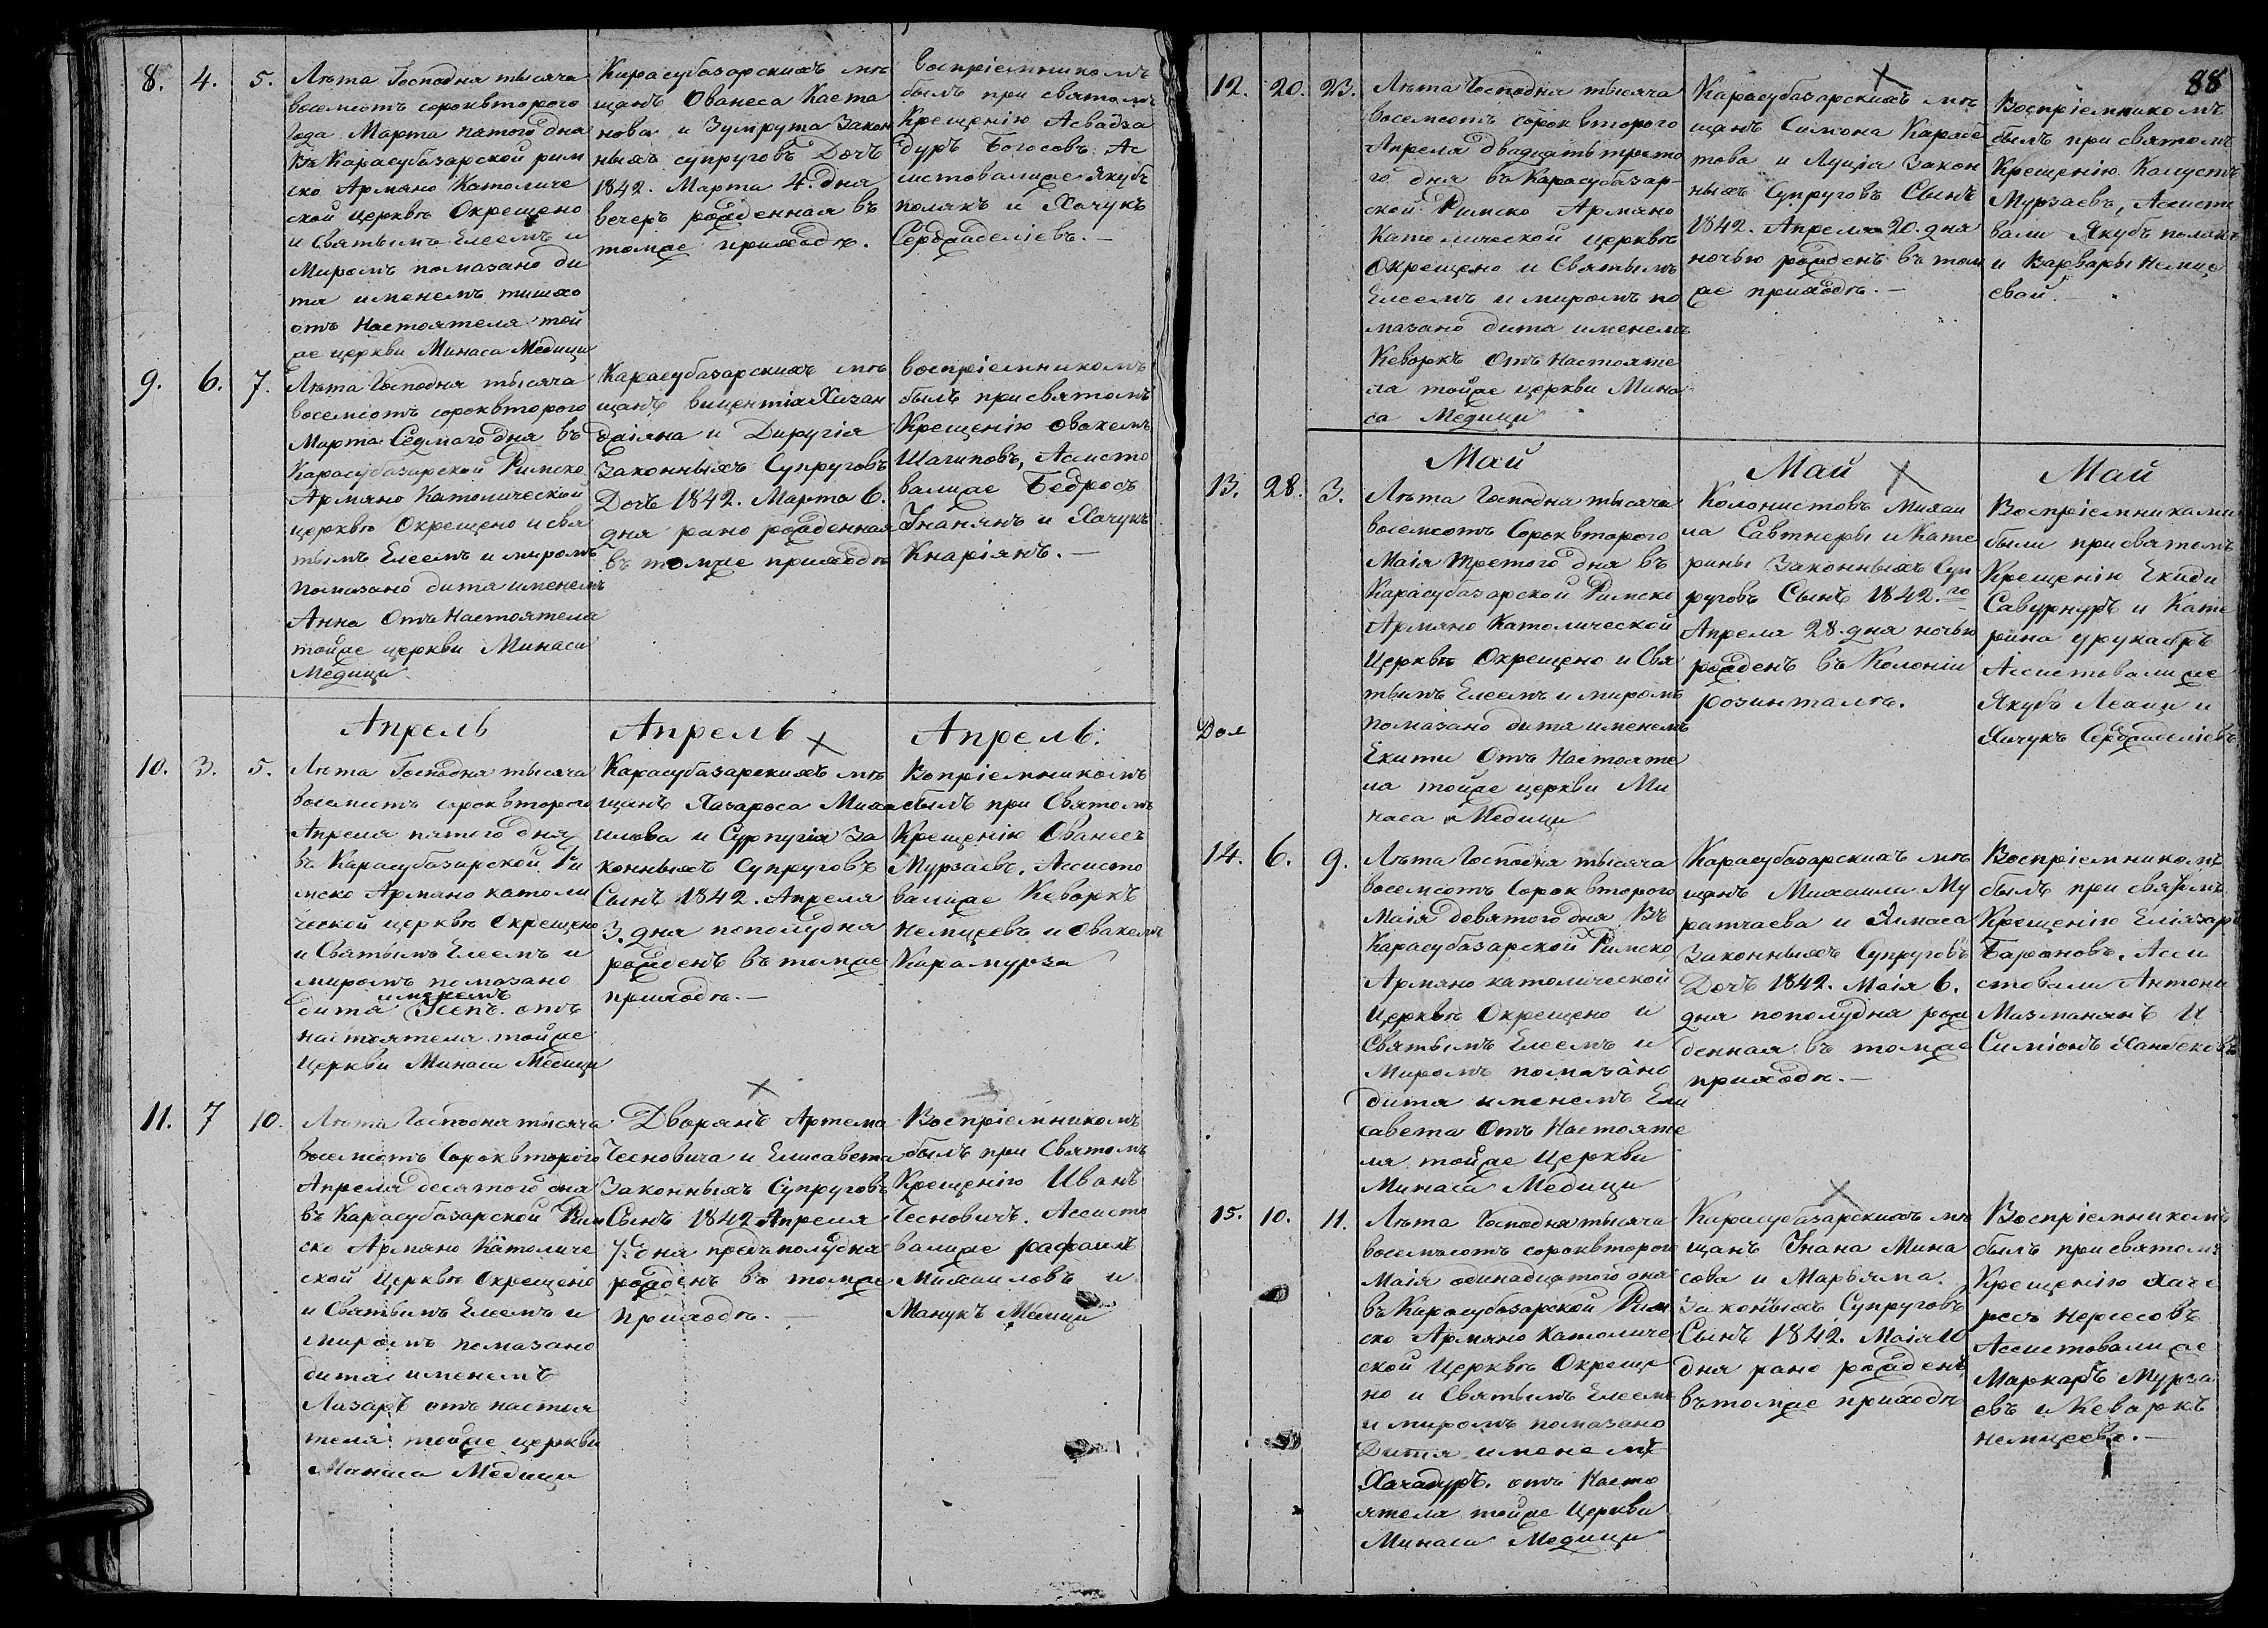 8. 4. 5.
Лѣта Господня тысяча
восемсотъ сороквторого
года Марта пятого дня
въ Карасубазарской рим
ско Армяно Католиче
ской церквѣ Окрещено
и Святымъ Елеемъ и
Миромъ помазано ди
тя именемъ
отъ Настоятеля той
же церкви Минаса Медици
Карасубазарскихъ мѣ
щанъ Ованеса Каста
нова и Зумрута Закон
ныхъ супруговъ Дочъ
1842. Марта 4. дня
вечеръ рожденная въ
томже приходѣ.
воспріемникомъ
былъ при святомъ
Крещенію Асвадза
дуръ Богосовъ. Ас
систовалиже Якубъ
полякъ и Хачукъ
9. 6. 7.
Лѣта Господня тысяча
восемсотъ сороквторого
Марта Седмаго дня въ
Карасубазарской Римско
Армяно Католической
церквѣ Окрещено и свя
тымъ Елеемъ и миромъ
помазано дитя именемъ
Анна Отъ Настоятеля
тойже церкви Минаса
Медици.
Карасубазарскихъ мѣ
щанъ викентія Хазан
джіяна и Диругія
Законныхъ Супруговъ
Дочъ 1842. Марта 6.
дня рано рожденная
въ томже приходѣ
воспріемникомъ
былъ присвятомъ
Крещенію Овакемъ
Шагиповъ, Ассисто
валиже Бедросъ
Унанянъ и Хачукъ
Кнаріянъ.—
Апрель
Апрель
Апрель.
10. 3. 5.
Лѣта Господня тысяча
восемсотъ сороквторого
Апреля пятого дня
въ Карасубазарской Ри
мско Армяно католи
ческой церквѣ Окрещено
и Святымъ Елеемъ и
миромъ помазано
именемъ
дитя отъ
настоятеля тойже
Церкви Минаса Медици
Карасубазарскихъ мѣ
щанъ Хазароса Миха
илова и Сурпугія За
конныхъ Супруговъ
Сынъ 1842. Апреля
3. дня пополудня
рожденъ въ томже
приходѣ.—
Вопріемникомъ
былъ при Святомъ
Крещенію Ованесъ
Мурзаевъ. Ассисто
валиже Кеворкъ
Немцевъ и Овакемъ
Карамурза
11. 7 10.
Лѣта Господня тысяча
восемсотъ Сороквторого
Апреля десятого дня
въ Карасубазарской Рим
ско Армяно Католиче
ской Церквѣ Окрещено
и Святымъ Елеемъ и
миромъ помазано
дитя именемъ
Лазаръ отъ настоя
теля тойже церкви
Минаса Медици
Дворянъ Артема
Чесновича и Елисавета
Законныхъ Супруговъ
Сынъ 1842 Апреля
7. дня предъполудня
рожденъ въ томже
приходѣ.—
Воспріемникомъ
былъ при Святомъ
Крещенію Иванъ
Чесновичъ. Ассисто
валиже рафаилъ
Михаиловъ и
Манукъ
88
12. 20. 23.
Лѣта Господня тысяча
восемсотъ сороквторого
Апреля двадцать трето
го дня въ Карасубазар-
ской Римско Армяно
Католической церквѣ
Окрещено и Святымъ
Елеемъ и миромъ по
мазано дитя именемъ
Кеворкъ Отъ Настояте
ля тойже церкви Мина
са Медици
Карасубазарскихъ мѣ
щанъ Симона Карабе
това и Луція Закон
ныхъ Супруговъ Сынъ
1842. Апреля 20. дня
ночью рожденъ въ том
же приходѣ.—
Воспріемникомъ
былъ при святомъ
Крещенію Калустъ
Мурзаевъ, Ассисто
вали Якубъ полякъ
и Варвары Немце
вой.
Май
Май
Май
13. 28. 3.
Лѣта Господня тысяча
восемсотъ Сороквторого
Маія Третого дня въ
Карасубазарской Римско
Армяно Католической
Церквѣ Окрещено и Свя
тымъ Елеемъ и миромъ
помазано дитя именемъ
Екити Отъ Настояте
ля тойже церкви Ми
наса Медици
Колонистовъ Михаи
ла Савтнеры и Кате
рины Законныхъ Суп
руговъ Сынъ 1842.го
Апреля 28. дня ночью
рожденъ въ Колоніи
розинталѣ.
Воспріемниками
были присвятомъ
Крещенію Екиди
Савурнуръ и Кате
рина
Ассистовалиже
Якубъ и
Хачукъ
14. 6. 9.
Лѣта Господня тысяча
восемсотъ Сорок второго
Маія девятого дня Въ
Карасубазарской Римско
Армяно католической
Церквѣ Окрещено и
Святымъ Елеемъ и
Миромъ помазано
дитя именемъ Ели
савета Отъ Настояте
ля тойже Церкви
Минаса Медици
Карасубазарскихъ мѣ
щанъ Михаила Му
ратчаева и Алмаса
Законныхъ Супруговъ
Дочъ 1842. Маія 6.
дня пополудня рож
денная въ томже
приходѣ.—
Воспріемникомъ
былъ при святомъ
Крещенію Еліязаръ
Бароновъ. Асси
стовали Антонъ
Мазманянъ И
Симіонъ
15. 10. 11.
Лѣта Господня тысяча
восемьсотъ сороквторого
Маія одинадцатого дня
въ Карасубазарской Рим
ско Армяно Католиче
ской Церквѣ Окреще
но и Святымъ Елеемъ
и миромъ помазано
Дитя именемъ
Хачадуръ. отъ Насто
ятеля тойже Церкви
Минаса Медици
Карасубазарскихъ мѣ
щанъ Унана Мина
сова и Марьяма.
Законныхъ Супруговъ
Сынъ 1842. Маія 10
дня рано рожденъ
въ томже приходѣ
Воспріемникомъ
былъ присвятомъ
Крещенію Хаче
ресъ Нерсесовъ
Ассистовалиже
Маркаръ Мурза
евъ и Кеворкъ
немцевъ.—